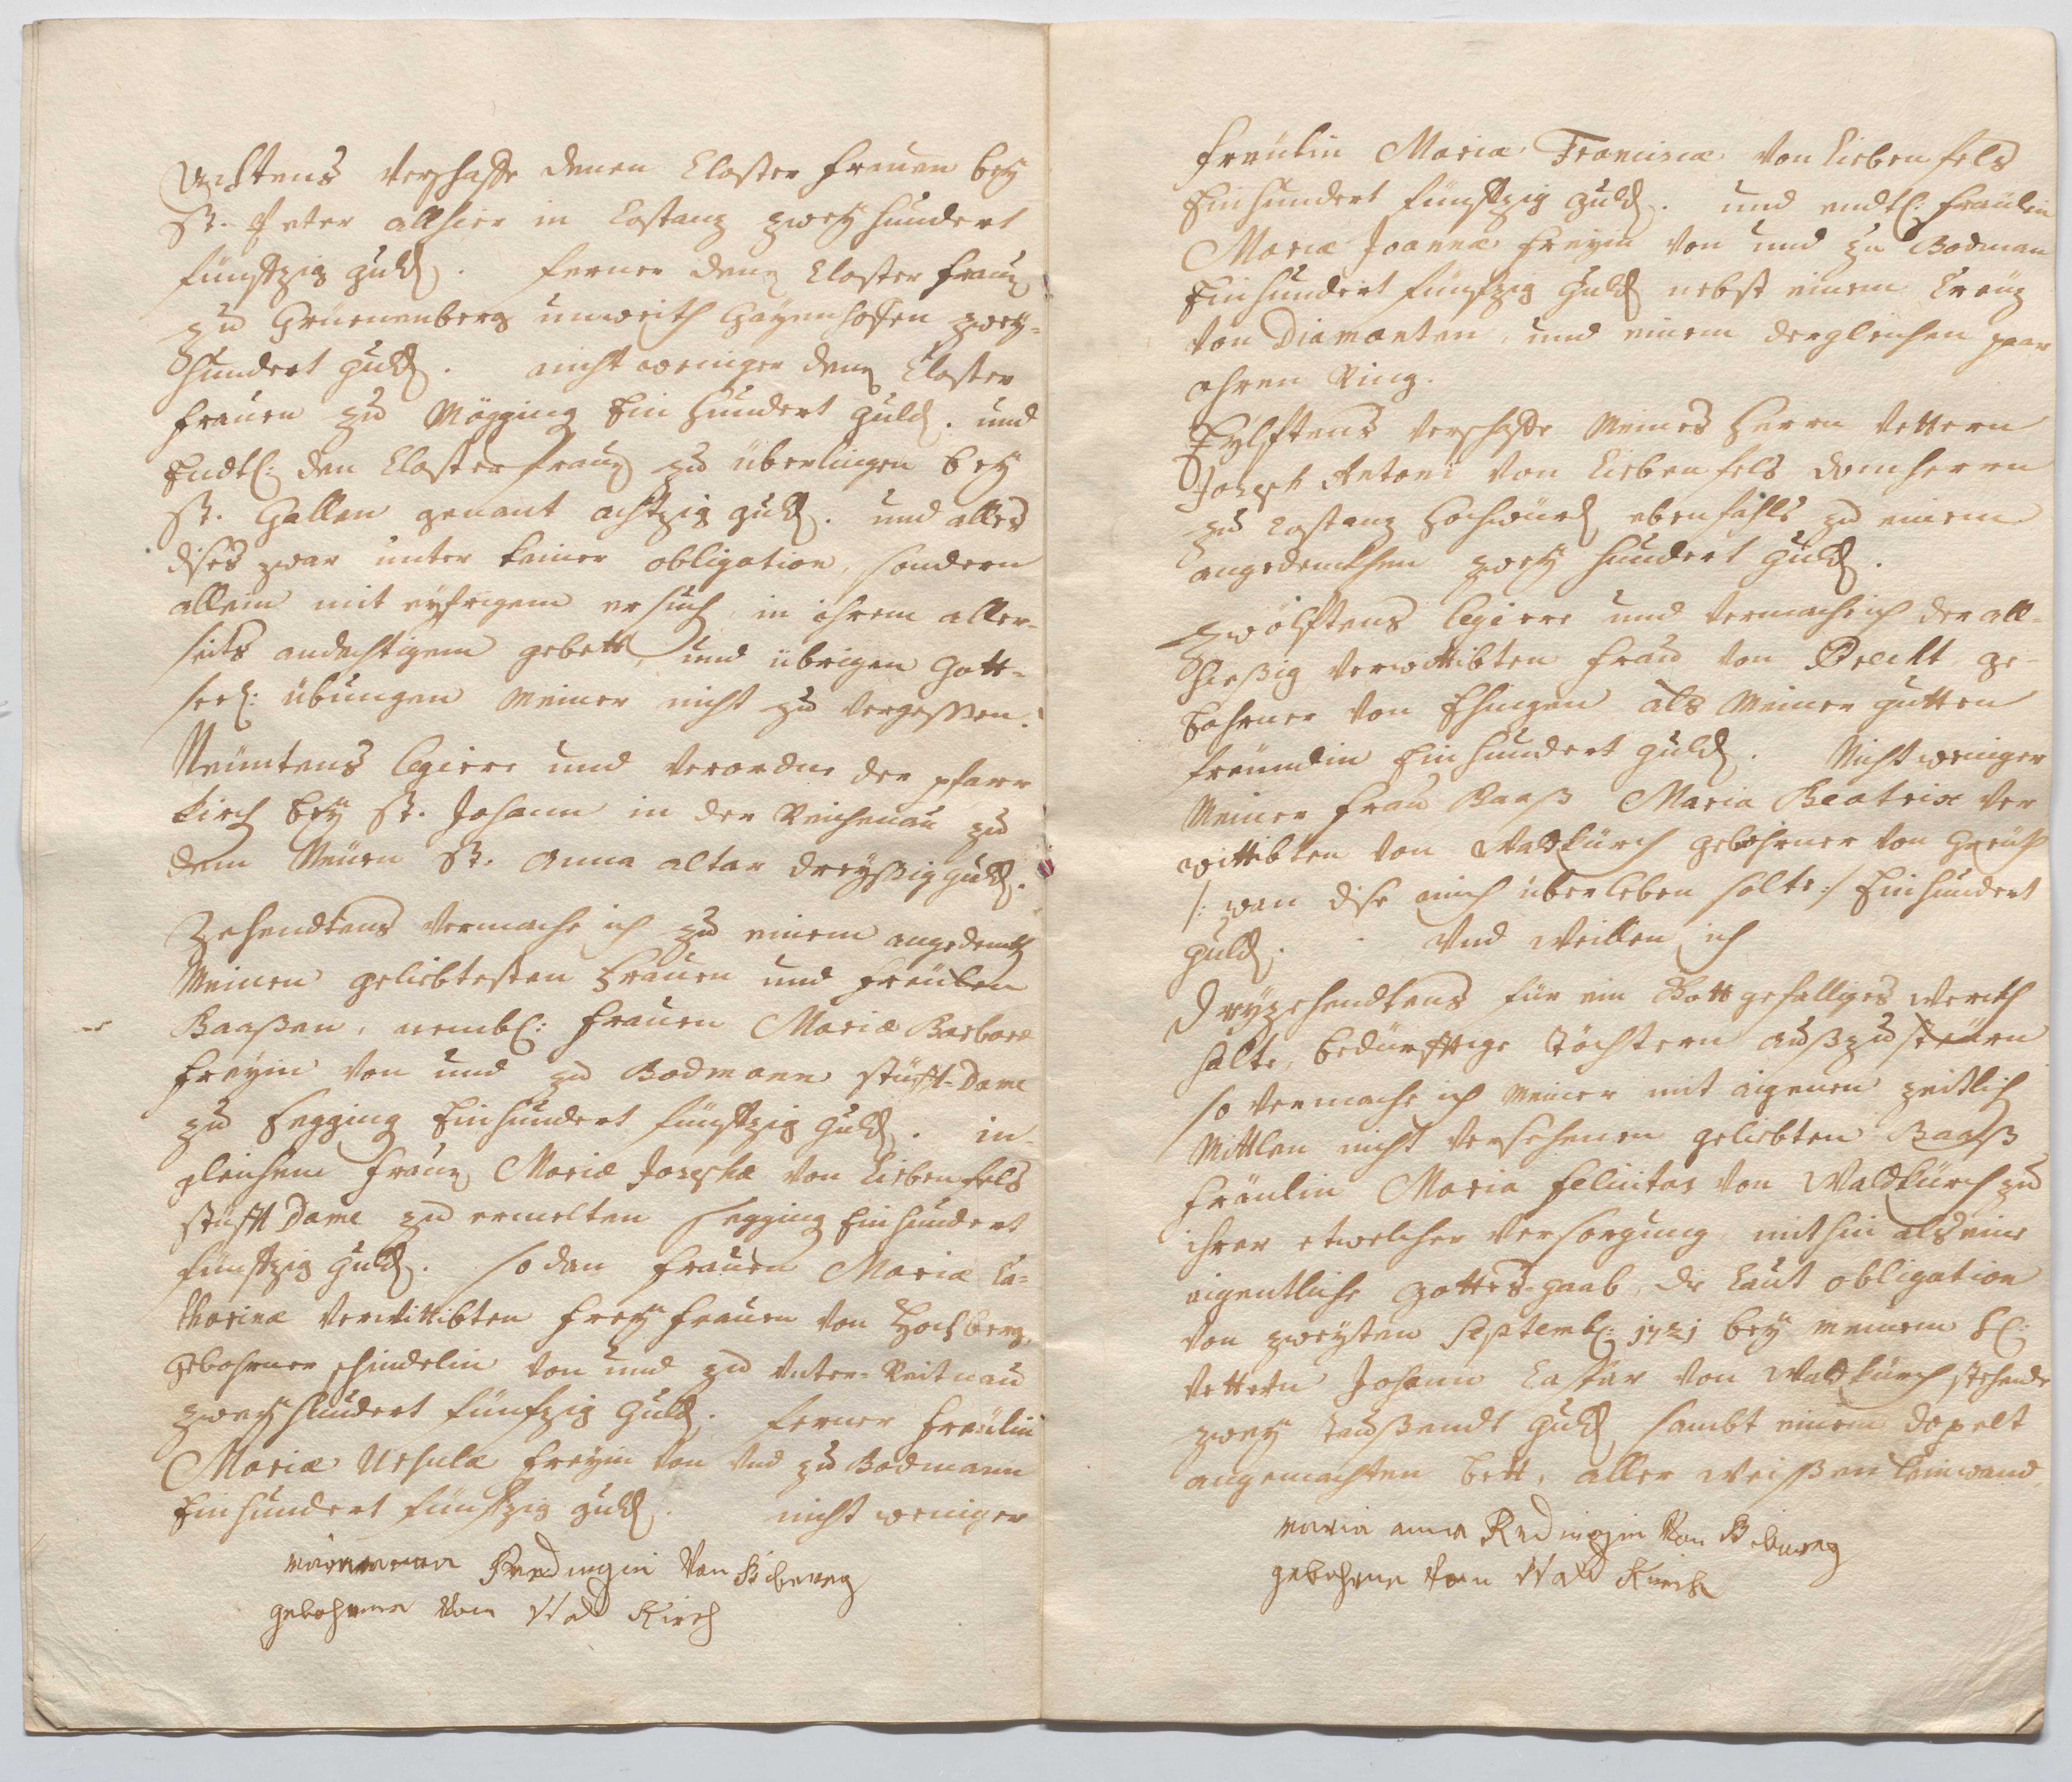 Achtens verschaffe denen Closter frauen bey
St. Peter allhier in Costanz zwey hundert
fünffzig guld. ferner denen Closter frauen
zu Gruenenberg unweith Gayenhoffen zwey-
hundert guld. nicht weniger denen Closter
frauen zu Mögging Ein hundert guld. und
Endtl: den Closter frauen zu überlingen bey
St. Gallen genant achtzig guld. und alles
dises zwar unter keiner obligation, sondern
allein mit eyfrigem ersuch, in ihrem aller-
seits andächtigem gebett, und übrigen Gott-
seel: übungen meiner nicht zu vergessen.
Neüntens legiere und verordne der pfarr
kirch bey St. Johann in der Reichenau zu
dem Neüen St. Anna altar dreyßig guld.
Zehendtens vermache ich zu einem angedenckhen
Meinen geliebtesten Frauen und Freülen
Baaßen, nembl: Frauen Mariæ Barbaræ
Freyin von und zu Bodmann stüfft-Dame
zu Segging Einhundert fünffzig guld. in-
gleichem Frauen Mariæ Josephæ von Liebenfels
stüfft Dame zu ermelten Segging Einhundert
fünffzig guld. sodan Frauen Mariæ Ca-
tharinæ verwittibten Frey Frauen von Hochberg,
gebohrner schindelin von und zu Unter-Reitnau
zwey hundert fünfzig guld. ferner Freülin
Mariæ Ursulæ Freyin von und zu Bodmann
Einhundert fünffzig guld. nicht weniger
Maria anna Redingin von Biberegg
gebohrne von Wald Kirch
Freülin Mariæ Franciscæ von Liebenfels
Einhundert fünffzig guld. und endtl: Freülin
Mariæ Joannæ Freyin von und zu Bodman
Einhundert fünfzig guld nebst einem Creüz
von Diamanten, und einem dergleichen paar
ohren Ring.
Eylfftens verschaffe Meines Herrn Vettern
Joseph Antoni von Liebenfels domherrn
zu Costanz Hochwürd ebenfahls zu einem
angedenckhen zwey hundert guld.
Zwölfftens legiere und vermache ich der all-
hießig verwittibten Frau von Precht ge-
bohrner von Ehingen als Meiner gutten
freündin Einhundert guld. Nicht weniger
Meiner Frau Baaß Maria Beatrix ver
wittibten von Waldkürch gebohrner von Greüth
/: wan dise mich überleben solte :/ Einhundert
guld. Und Weillen ich
Dreyzehendtens für ein Gott gefälliges Werckh
halte, bedürfftige Töchtern außzusteüren
so vermache ich Meiner mit aigenen zeitlich
Mittlen nicht versehenen geliebten Baaß
Freülin Maria Felicitas von Waldkürch zu
ihrer etwelcher versorgung, mithin als eine
eigentliche Gottes-gaab, die laut obligation
von zweyten Septemb: 1721 bey meinem H:
Vettern Johann Caspar von Waldkürch stehende
zwey taußendt guld, sambt einem dopelt
angemachten bett, aller weißen leinwand,
Maria anna Redingin von Biberegg
gebohrne von Wald Kirch